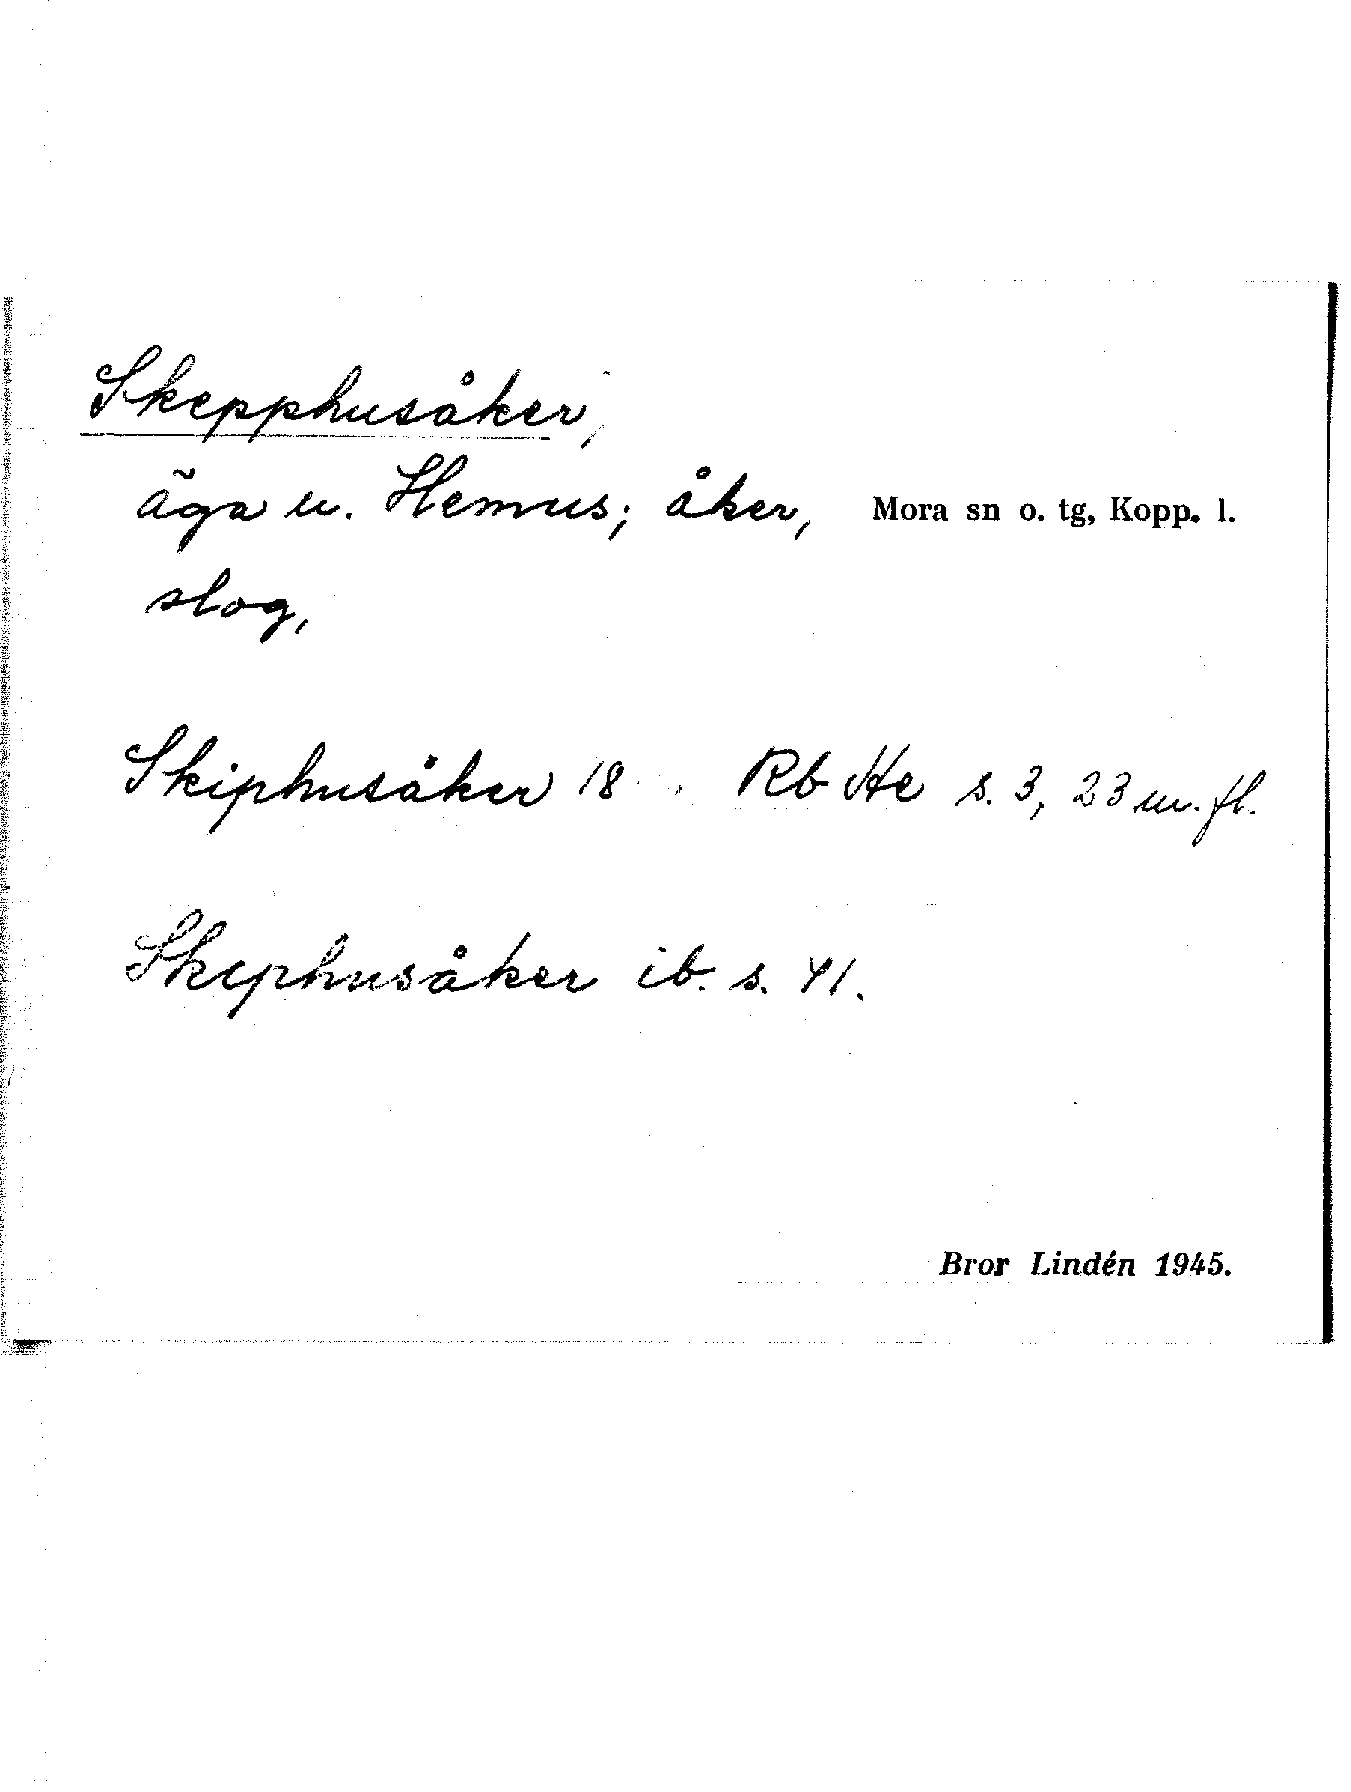 Skepphusåker,
äga u. Hemus; åker, Mora sn o. tg, Kopp. l.
slog,
Skiphusåker 18 . Rb He s. 3, 23 m. fl.
Skephusåker ib. s. 41.
Bror Lindén 1945.